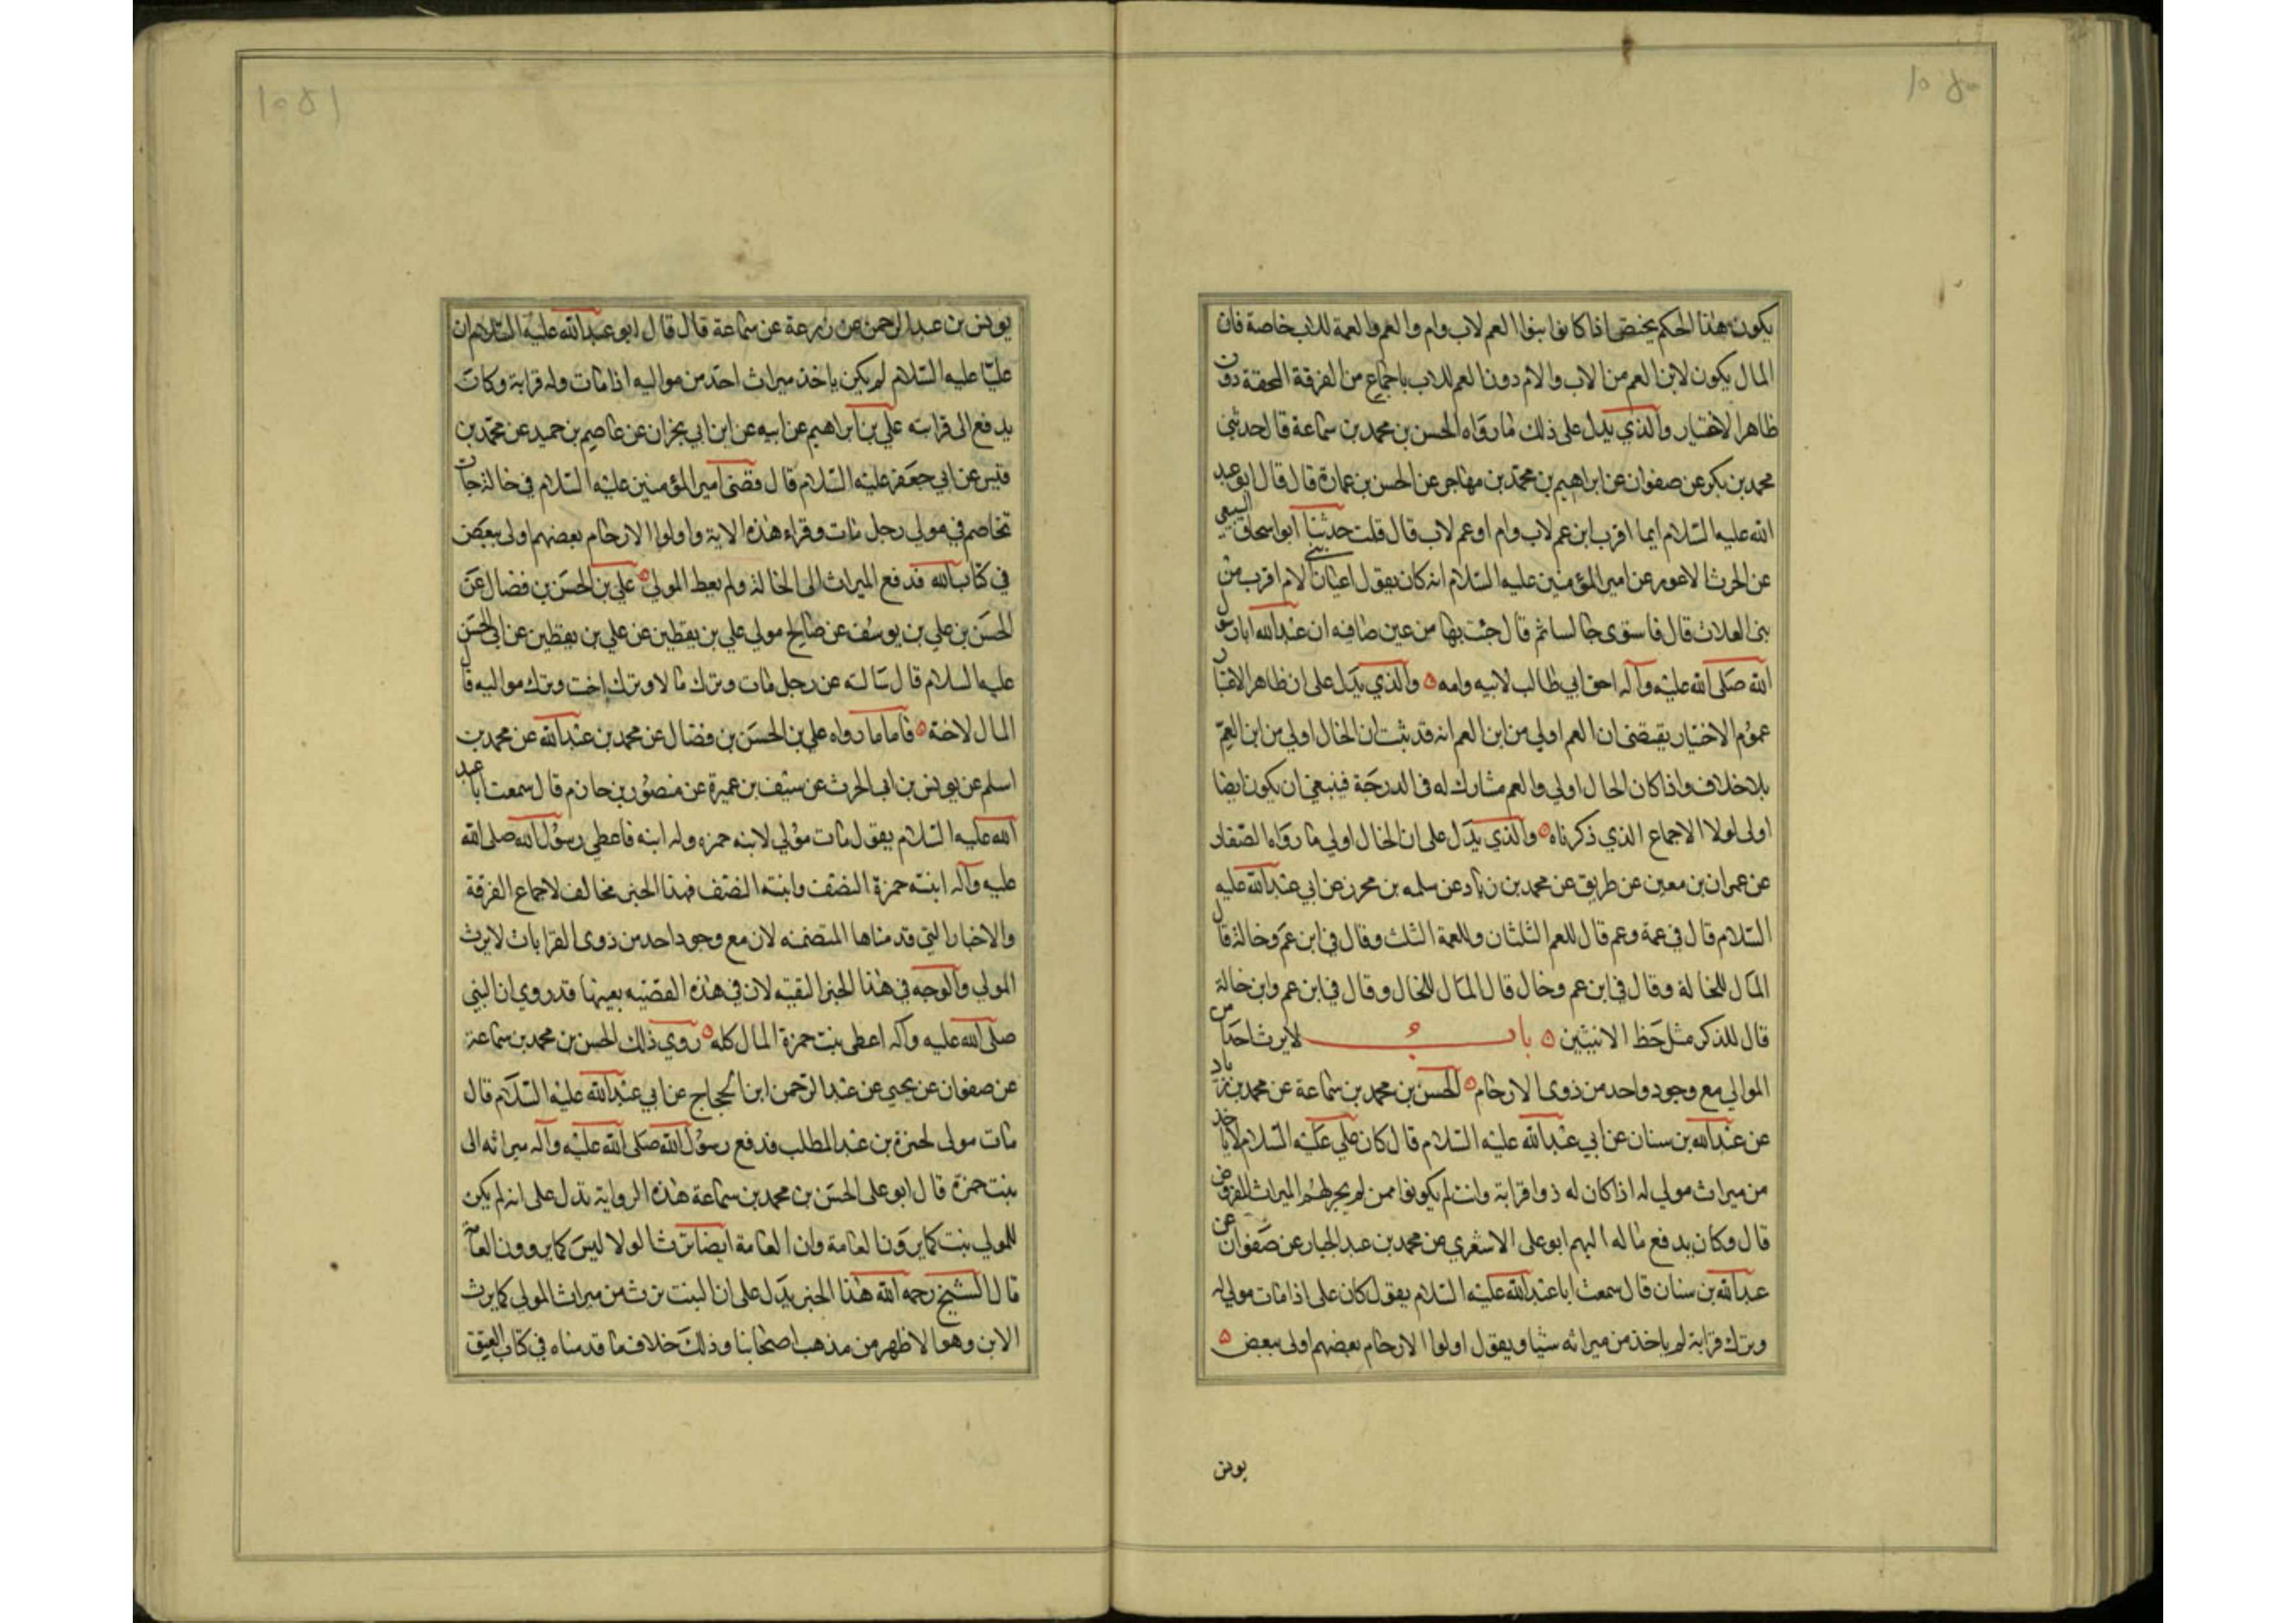 ١٠٥٠
يكون هذا الحكم يختص اذا كانوا بنوا العم لاب وام والعم والعمة للاب خاصة فان
المال يكون لابن العم من الاب والام دون العم للاب باجماع من الفرقة المحقة دون
ظاهر الاختيار والذي يدل على ذلك ما رواه الحسن بن محمد بن سماعة قال حدثنى
محمد بن بكر عن صفوان عن ابراهيم بن محمد بن مهاجر عن الحسن بن عمارة قال قال ابو عبد
الله عليه السلام ايما اقرب ابن عم لاب وام او عم لاب قال قلت حدثنا ابو اسحاق السبيعي
عن الحرث الاعور عن امير المؤمنين عليه السلام انه كان يقول اعيان بني الام اقرب من
بنى العلات قال فاستوى جالسا ثم قال جئت بها من عين صافيه ان عبد الله ابا رسول
الله صلى الله عليه وآله احق ابي طالب لابيه وامه ٥ والذي يدل على ان ظاهر الاخبار
عموم الاختيار يقتضى ان العم اولى من ابن العم انه قد ثبت ان الخال اولي من ابن العم
بلا خلاف واذا كان الخال اولي والعم مشارك له فى الدرجة فينبغي ان يكون ايضا
اولى لولا الاجماع الذي ذكرناه ٥ والذي يدل على ان الخال اولي ما رواه الصفار
عن عمران بن معين عن طريق عن محمد بن زياد عن سلمه بن محرز عن ابي عبد الله عليه
السلام قال في عمة وعم قال للعم الثلثان وللعمة الثلث وقال في ابن عم وخالة قال
المال للخالة وقال في ابن عم وخال قال المال للخال وقال في ابن عم وابن خالة
قال للذكر مثل حظ الانثيين ٥ باب لا يرث احدا من
الموالي مع وجود واحد من ذوى الارحام ٥ الحسن بن محمد بن سماعة عن محمد بن زياد
عن عبد الله بن سنان عن ابي عبد الله عليه السلام قال كان علي عليه السلام لا ياخذ
من ميراث مولي له اذا كان له ذوا قرابة وانت لم يكونوا ممن لم يجر لهم الميراث المفروض
قال وكان يدفع ماله اليهم ابو على الاشعري عن محمد بن عبد الجبار عن صفوان عن
عبد الله بن سنان قال سمعت ابا عبد الله عليه السلام يقول كان على اذا مات مولي له
وترك قرابة لم ياخذ من ميراثه شيا ويقول اولوا الارحام بعضهم اولى ببعض ٥
يونس
١٠٥١
يونس بن عبد الرحمن عن زرعة عن سماعة قال قال ابو عبد الله عليه السلام ان
عليا عليه السلام لم يكن ياخذ ميراث احد من مواليه اذا مات وله قرابة وكان
يدفع الى قرابته علي بن ابراهيم عن ابيه عن ابن ابي نجران عن عاصم بن حميد عن محمد بن
قيس عن ابي جعفر عليه السلام قال قضى امير المؤمنين عليه السلام في خالة جات
تخاصم في مولي رجل مات وقراء هذه الاية واولوا الارحام بعضهم اولى ببعض
في كتاب الله فدفع الميراث الى الخالة ولم يعط المولي ٥ علي بن الحسن بن فضال عن
الحسن بن علي بن يوسف عن صالح مولي علي بن يقطين عن علي بن يقطين عن ابي الحسن
عليه السلام قال سالته عن رجل مات وترك مالا وترك اخت وترك مواليه قال
المال لاخته ٥ فاما ما رواه علي بن الحسن بن فضال عن محمد بن عبد الله عن محمد بن
اسلم عن يونس بن ابى الحرث عن سيف بن عميرة عن منصور بن حازم قال سمعت ابا عبد
الله عليه السلام يقول مات مولي لابنه حمزه وله ابنه فاعطي رسول الله صلى الله
عليه وآله ابنته حمزة النصف وابنته النصف فهذا الخبر مخالف لاجماع الفرقة
والاخبار التي قدمناها المتضمنه لان مع وجود احد من ذوى القرابات لا يرث
المولي والوجه في هذا الخبر التقيه لان في هذه القضيه بعينها قد روي ان النبي
صلى الله عليه وآله اعطى بنت حمزة المال كله ٥ روي ذلك الحسن بن محمد بن سماعة
عن صفوان عن يحيي عن عبد الرحمن ابن الحجاج عن ابي عبد الله عليه السلام قال
مات مولى لحمزة بن عبد المطلب فدفع رسول الله صلى الله عليه وآله ميراثه الى
بنت حمزة قال ابو على الحسن بن محمد بن سماعة هذه الرواية تدل على انه لم يكن
للمولي بنت كما يروون العامة وان العامة ايضا ترث الولا ليس كما يروون العامة
قال الشيخ رحمه الله هذا الخبر يدل على ان البنت ترث من ميراث المولي كما يرث
الابن وهو الاظهر من مذهب اصحابنا وذلك خلاف ما قدمناه في كتاب العتق